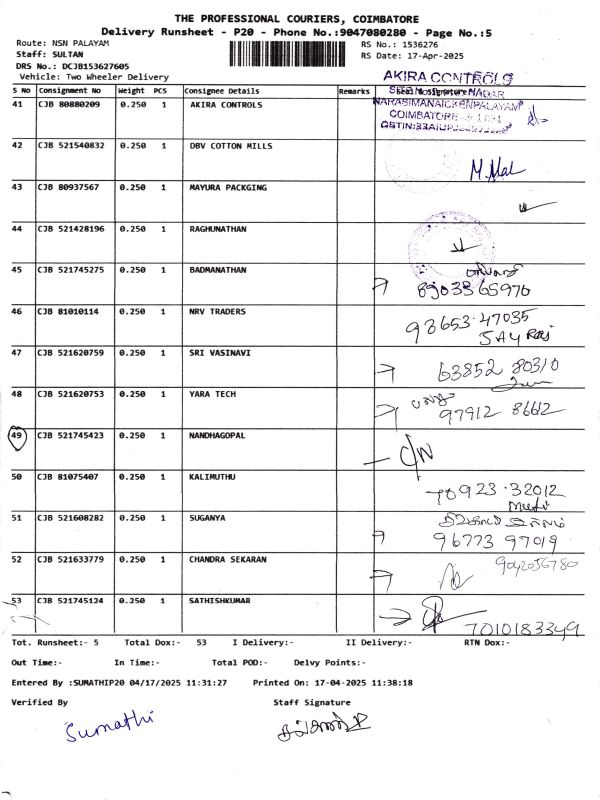 THE PROFESSIONAL COURIERS, COIMBATORE
Delivery Runsheet - P20 - Phone No.:9047080280 - Page No.:5
Route: NSN PALAYAM
RS No.: 1536276
Staff: SULTAN
RS Date: 17-Apr-2025
DRS No.: DCJB153627605
Vehicle: Two Wheeler Delivery
AKIRA CONTROLS
S No Consignment No Weight PCS Consignee Details Remarks
NARASIMANAICKENPALAYAM
41 CJB 80880209 0.250 1 AKIRA CONTROLS
COIMBATORE
42 CJB 521540832 0.250 1 DBV COTTON MILLS
43 CJB 80937567 0.250 1 MAYURA PACKGING
44 CJB 521428196 0.250 1 RAGHUNATHAN
45 CJB 521745275 0.250 1 BADMANATHAN
89033 65970
46 CJB 81010114 0.250 1 NRV TRADERS 93653.47035
47 CJB 521620759 0.250 1 SRI VASINAVI 63852 80310
48 CJB 521620753 0.250 1 YARA TECH
97912 86612
49 CJB 521745423 0.250 1 NANDHAGOPAL
C/N
50 CJB 81075407 0.250 1 KALIMUTHU
70923.32012
51 CJB 521608282 0.250 1 SUGANYA
96773 97019
52 CJB 521633779 0.250 1 CHANDRA SEKARAN 9042056780
53 CJB 521745124 0.250 1 SATHISHKUMAR
7010183349
Tot. Runsheet:- 5 Total Dox:- 53 I Delivery:- II Delivery:- RTN Dox:-
Out Time:- In Time:- Total POD:- Delvy Points:-
Entered By :SUMATHIP20 04/17/2025 11:31:27 Printed On: 17-04-2025 11:38:18
Verified By Staff Signature
Sumathi